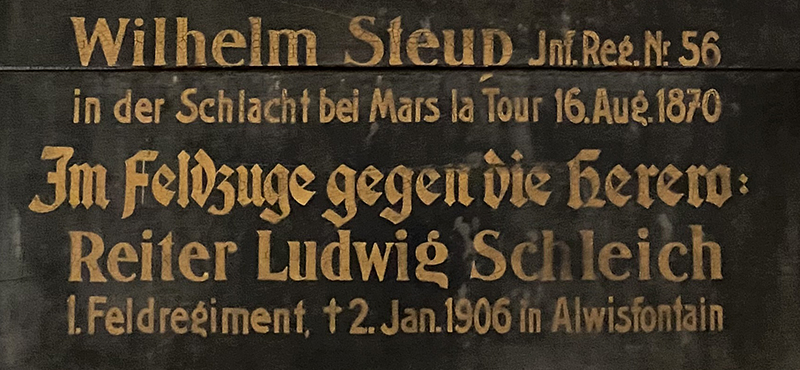 Wilhelm Steup Inf. Reg. Nr 56
in der Schlacht bei Mars la Tour 16. Aug. 1870
Im Feldzuge gegen die Herero:
Reiter Ludwig Schleich
1. Feldregiment, † 2. Jan. 1906 in Alwisfontain